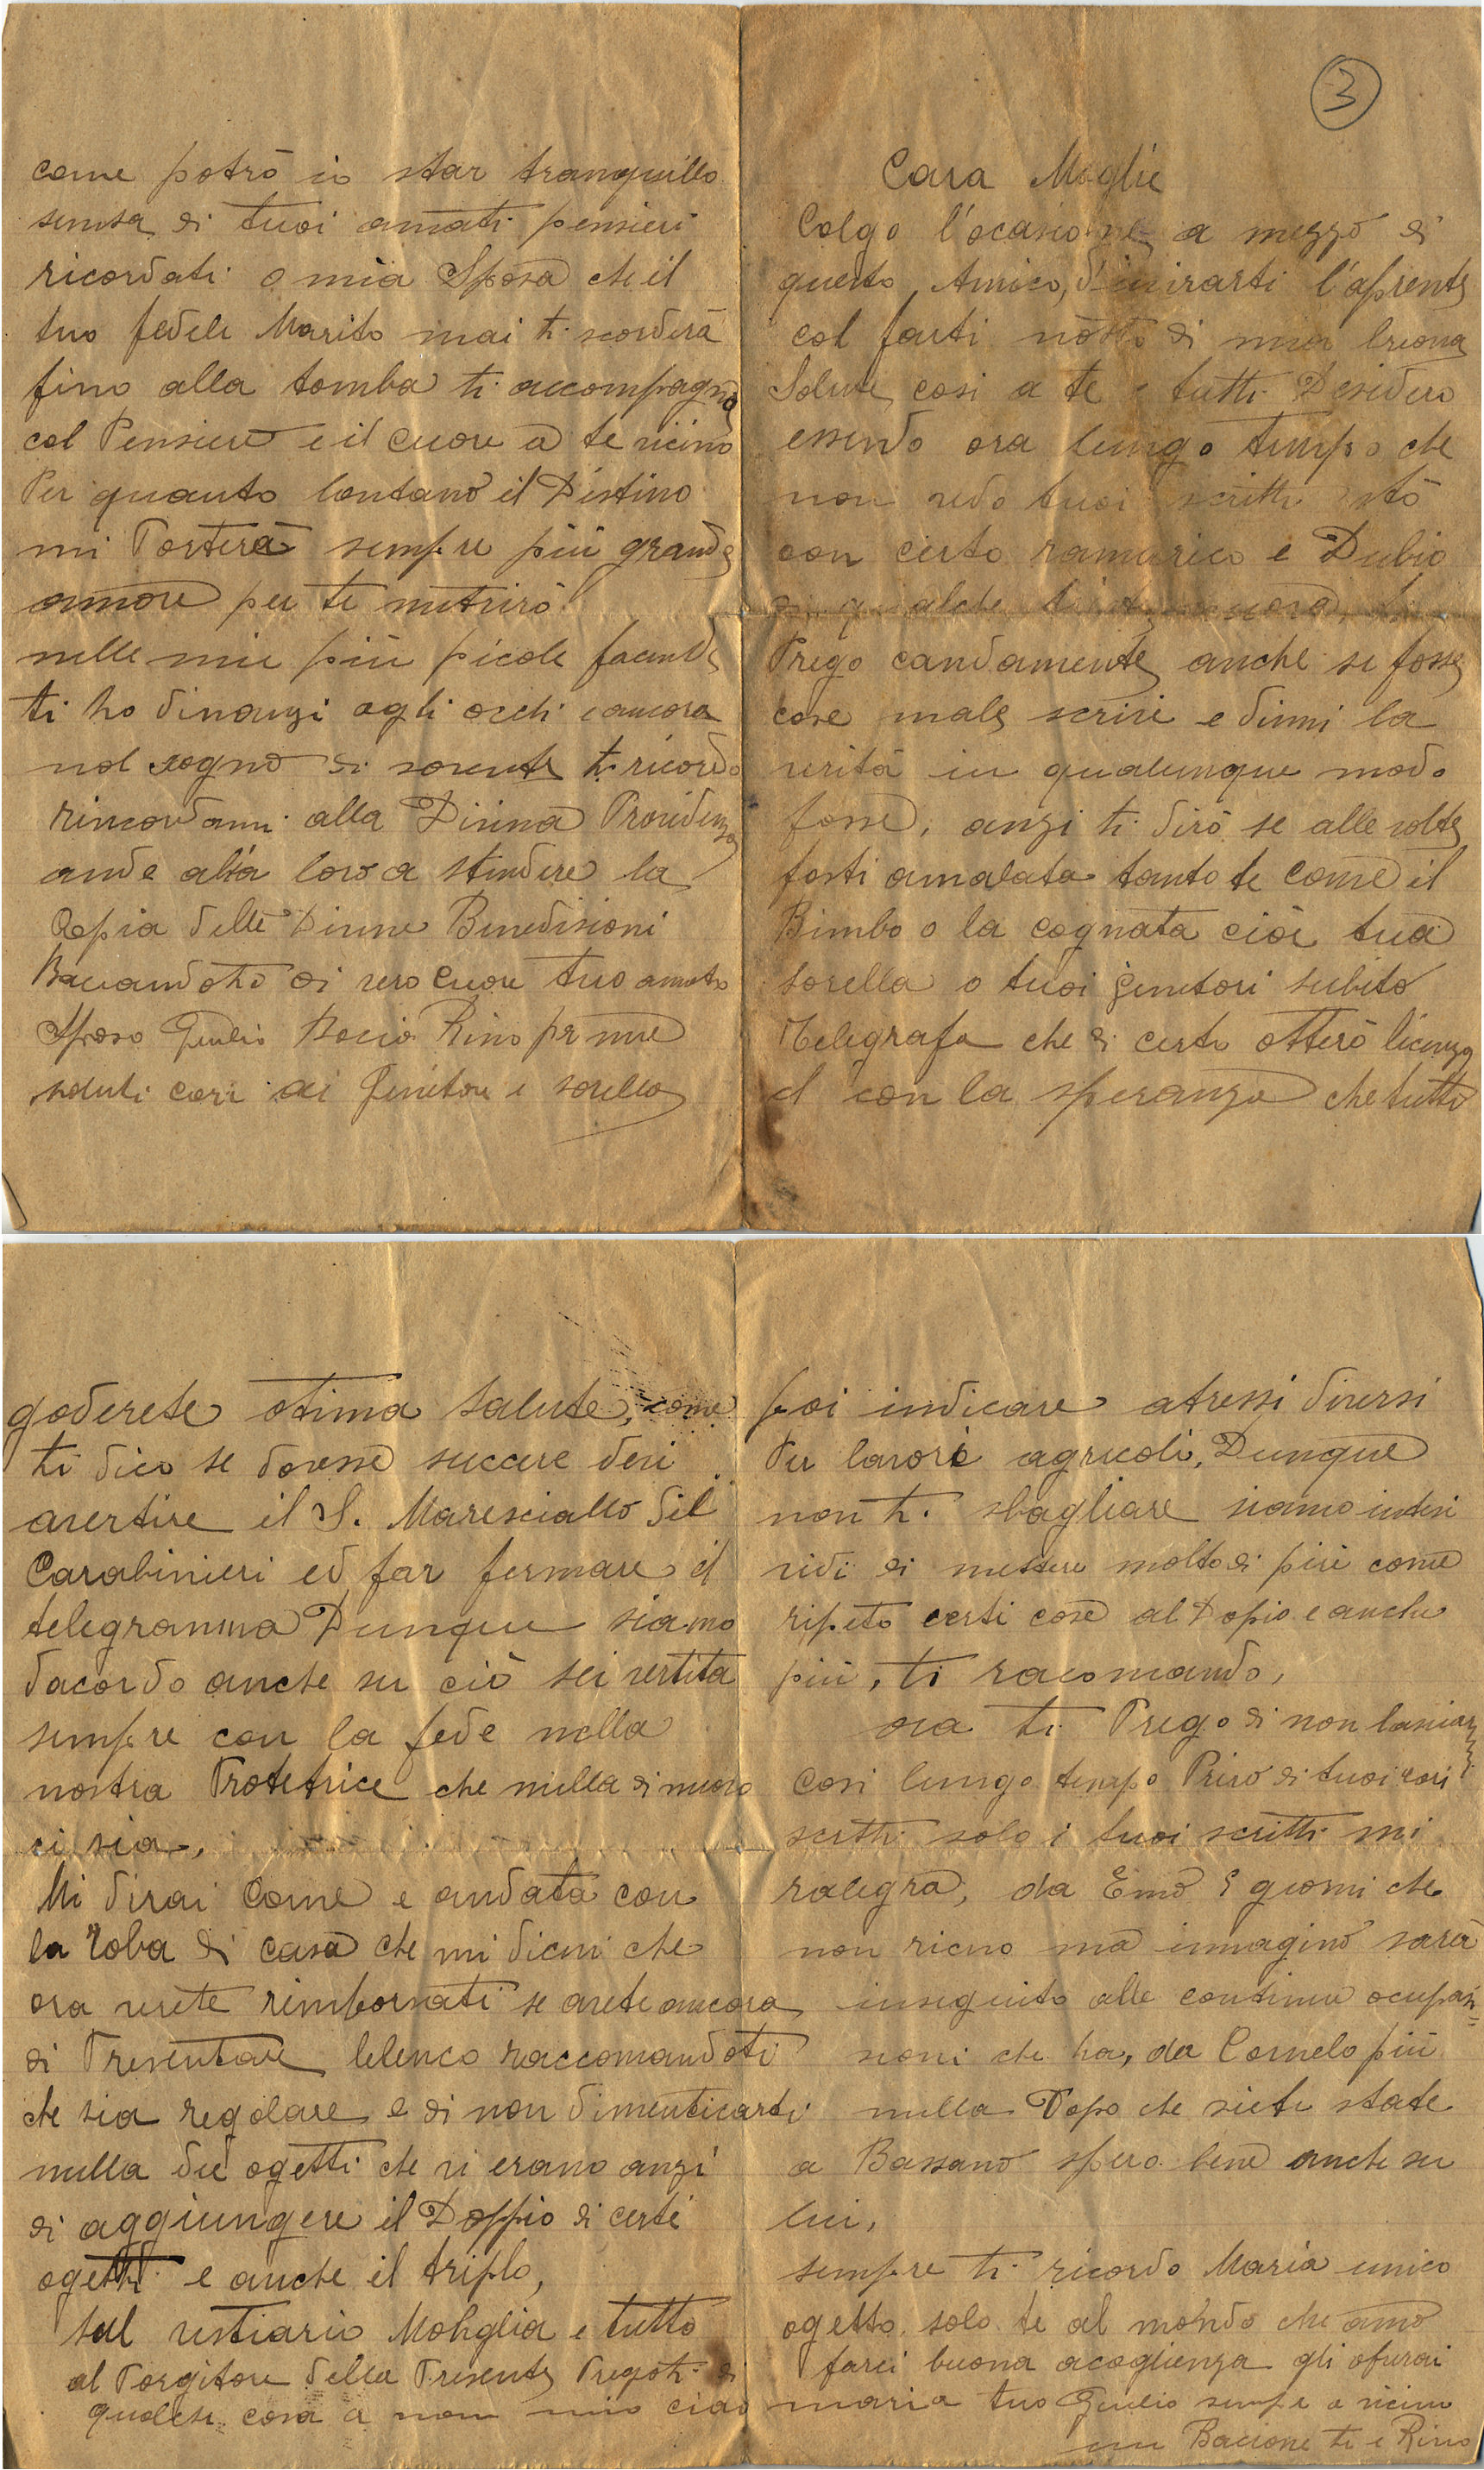 3
Cara Moglie
Colgo l'ocasione a mezzo di
questo Amico, d'inirarti l'aprente
col farti noto di mia buona
Salute cosi a te e tutti Desidero
essendo ora lungo tempo che
non vedo tuoi scritti stò
con certo ramarico e Dubio
qualche
Prego candamente anche se fosse
cose male scrivi e dimmi la
verità in qualunque modo
fosse, anzi ti dirò se alle volte
fosti amalata tanto te come il
Bimbo o la cognata cioè tua
sorella o tuoi genitori subito
Telegrafa che di certo otterò licenza
d con la speranza che tutti
goderete otima salute, come
ti dico se dovesse succere devi
avertire il S. Maresciallo del
Carabinieri ed far fermare il
telegramma Dunque siamo
dacordo anche su ciò sei vertita
sempre con la fede nella
nostra Protetrice che nulla di nuovo
ci sia,
Mi dirai Come e andata con
la roba di casa che mi dicevi che
ora verete rimborsati se avete ancora
di Presentare lelenco raccomandoti
che sia regolare e di non dimenticarti
nulla die ogetti che vi erano anzi
di aggiungere il Doppio di certi
ogetti e anche il triplo,
sul vestiario Mobiglia e tutto
poi indicare atressi diversi
Per lavori agricoli, Dunque
non ti sbagliare siamo intesi
vidi di mettere molto di più come
ripeto certi cose al Dopio e anche
più, ti racomando,
ora ti Prego di non lasciarmi
Cosi lungo tempo Privo di tuoi cari
scritti solo i tuoi scritti mi
ralegra, da Emo è giorni che
non ricevo ma immagino sarà
inseguito alle continue ocupazi=
sioni che ha, da Cornelo più
nulla Dopo che siete state
a Bassano spero bene anche su
lui,
sempre ti ricordo Maria unico
ogetto solo te al mondo che amo
al Porgitore della Presente Pregoti di farci buona acoglienza gli ofrirai
qualche cosa a nom mio ciao maria tuo Giulio sempre a vicino
un Bacione te e Rino
come potrò io star tranquillo
sensa di tuoi amati pensieri
ricordati o mia Sposa che il
tuo fedele Marito mai ti scorderà
fino alla tomba ti accompagno
col Pensiero e il cuore a te vicino
Per quanto lontano il Destino
mi Porterà sempre più grande
amore per te nutrirò
nelle mie più picole facende
ti ho dinanzi agli occhi e ancora
nel sogno di sovente ti ricordo
rincordami alla Divina Providenza
ande alsa loro a stendere la
Copia delle Divine Benedisioni
Baciandoti di vero Cuore tuo amato
Sposo Giulio Bacia Rino pr me
saluti cari ai Genitori e sorella